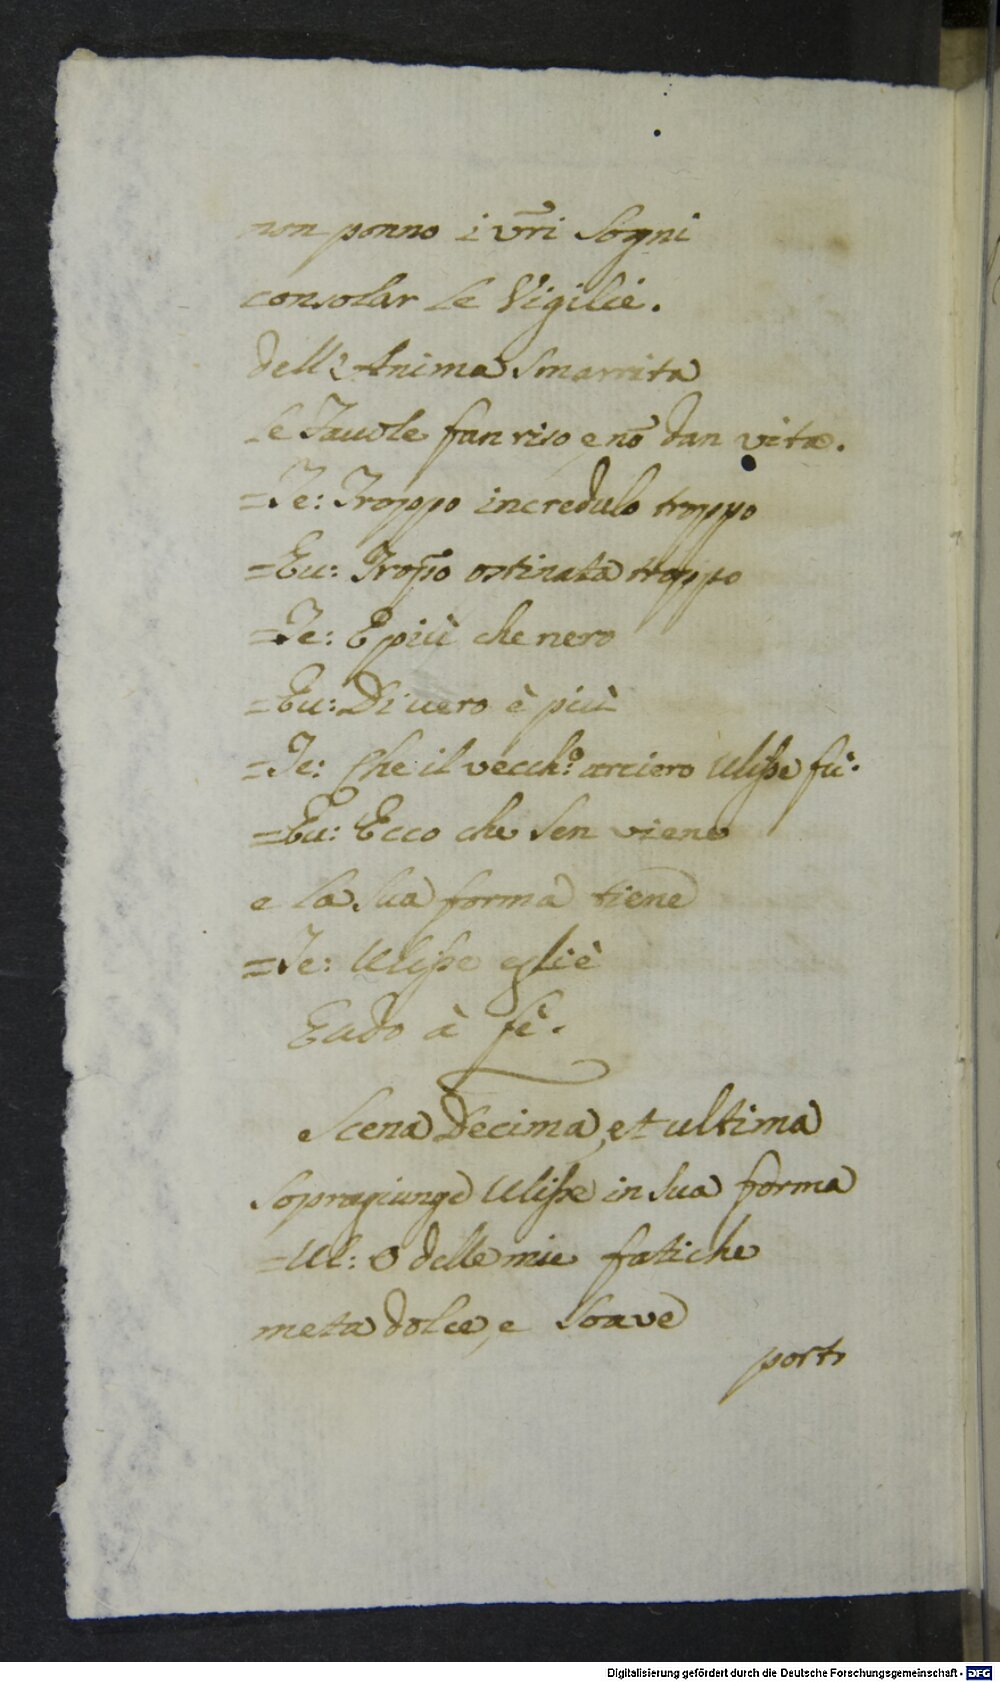 non ponno i vr̃i sogni
consolar le Vigilie.
dell'Anima smarrita
le Fauole fan riso, e nõ dan vita.
=Te: Troppo incredulo troppo
=Eu: Trop̃o ostinata troppo
=Te: E più che nero
=Eu: Di uero è più
=Te: Che il vecch.º arciero Ulisse fù.
=Eu: Ecco che sen viene
e la sua forma tiene
=Te: Ulisse egli è
Eudo à fè.
Scena Decima, et ultima
Sopragiunge Ulisse in sua forma
=Ul: O delle mie fatiche
meta dolce, e soave
porto
Digitalisierung gefördert durch die Deutsche Forschungsgemeinschaft - DFG